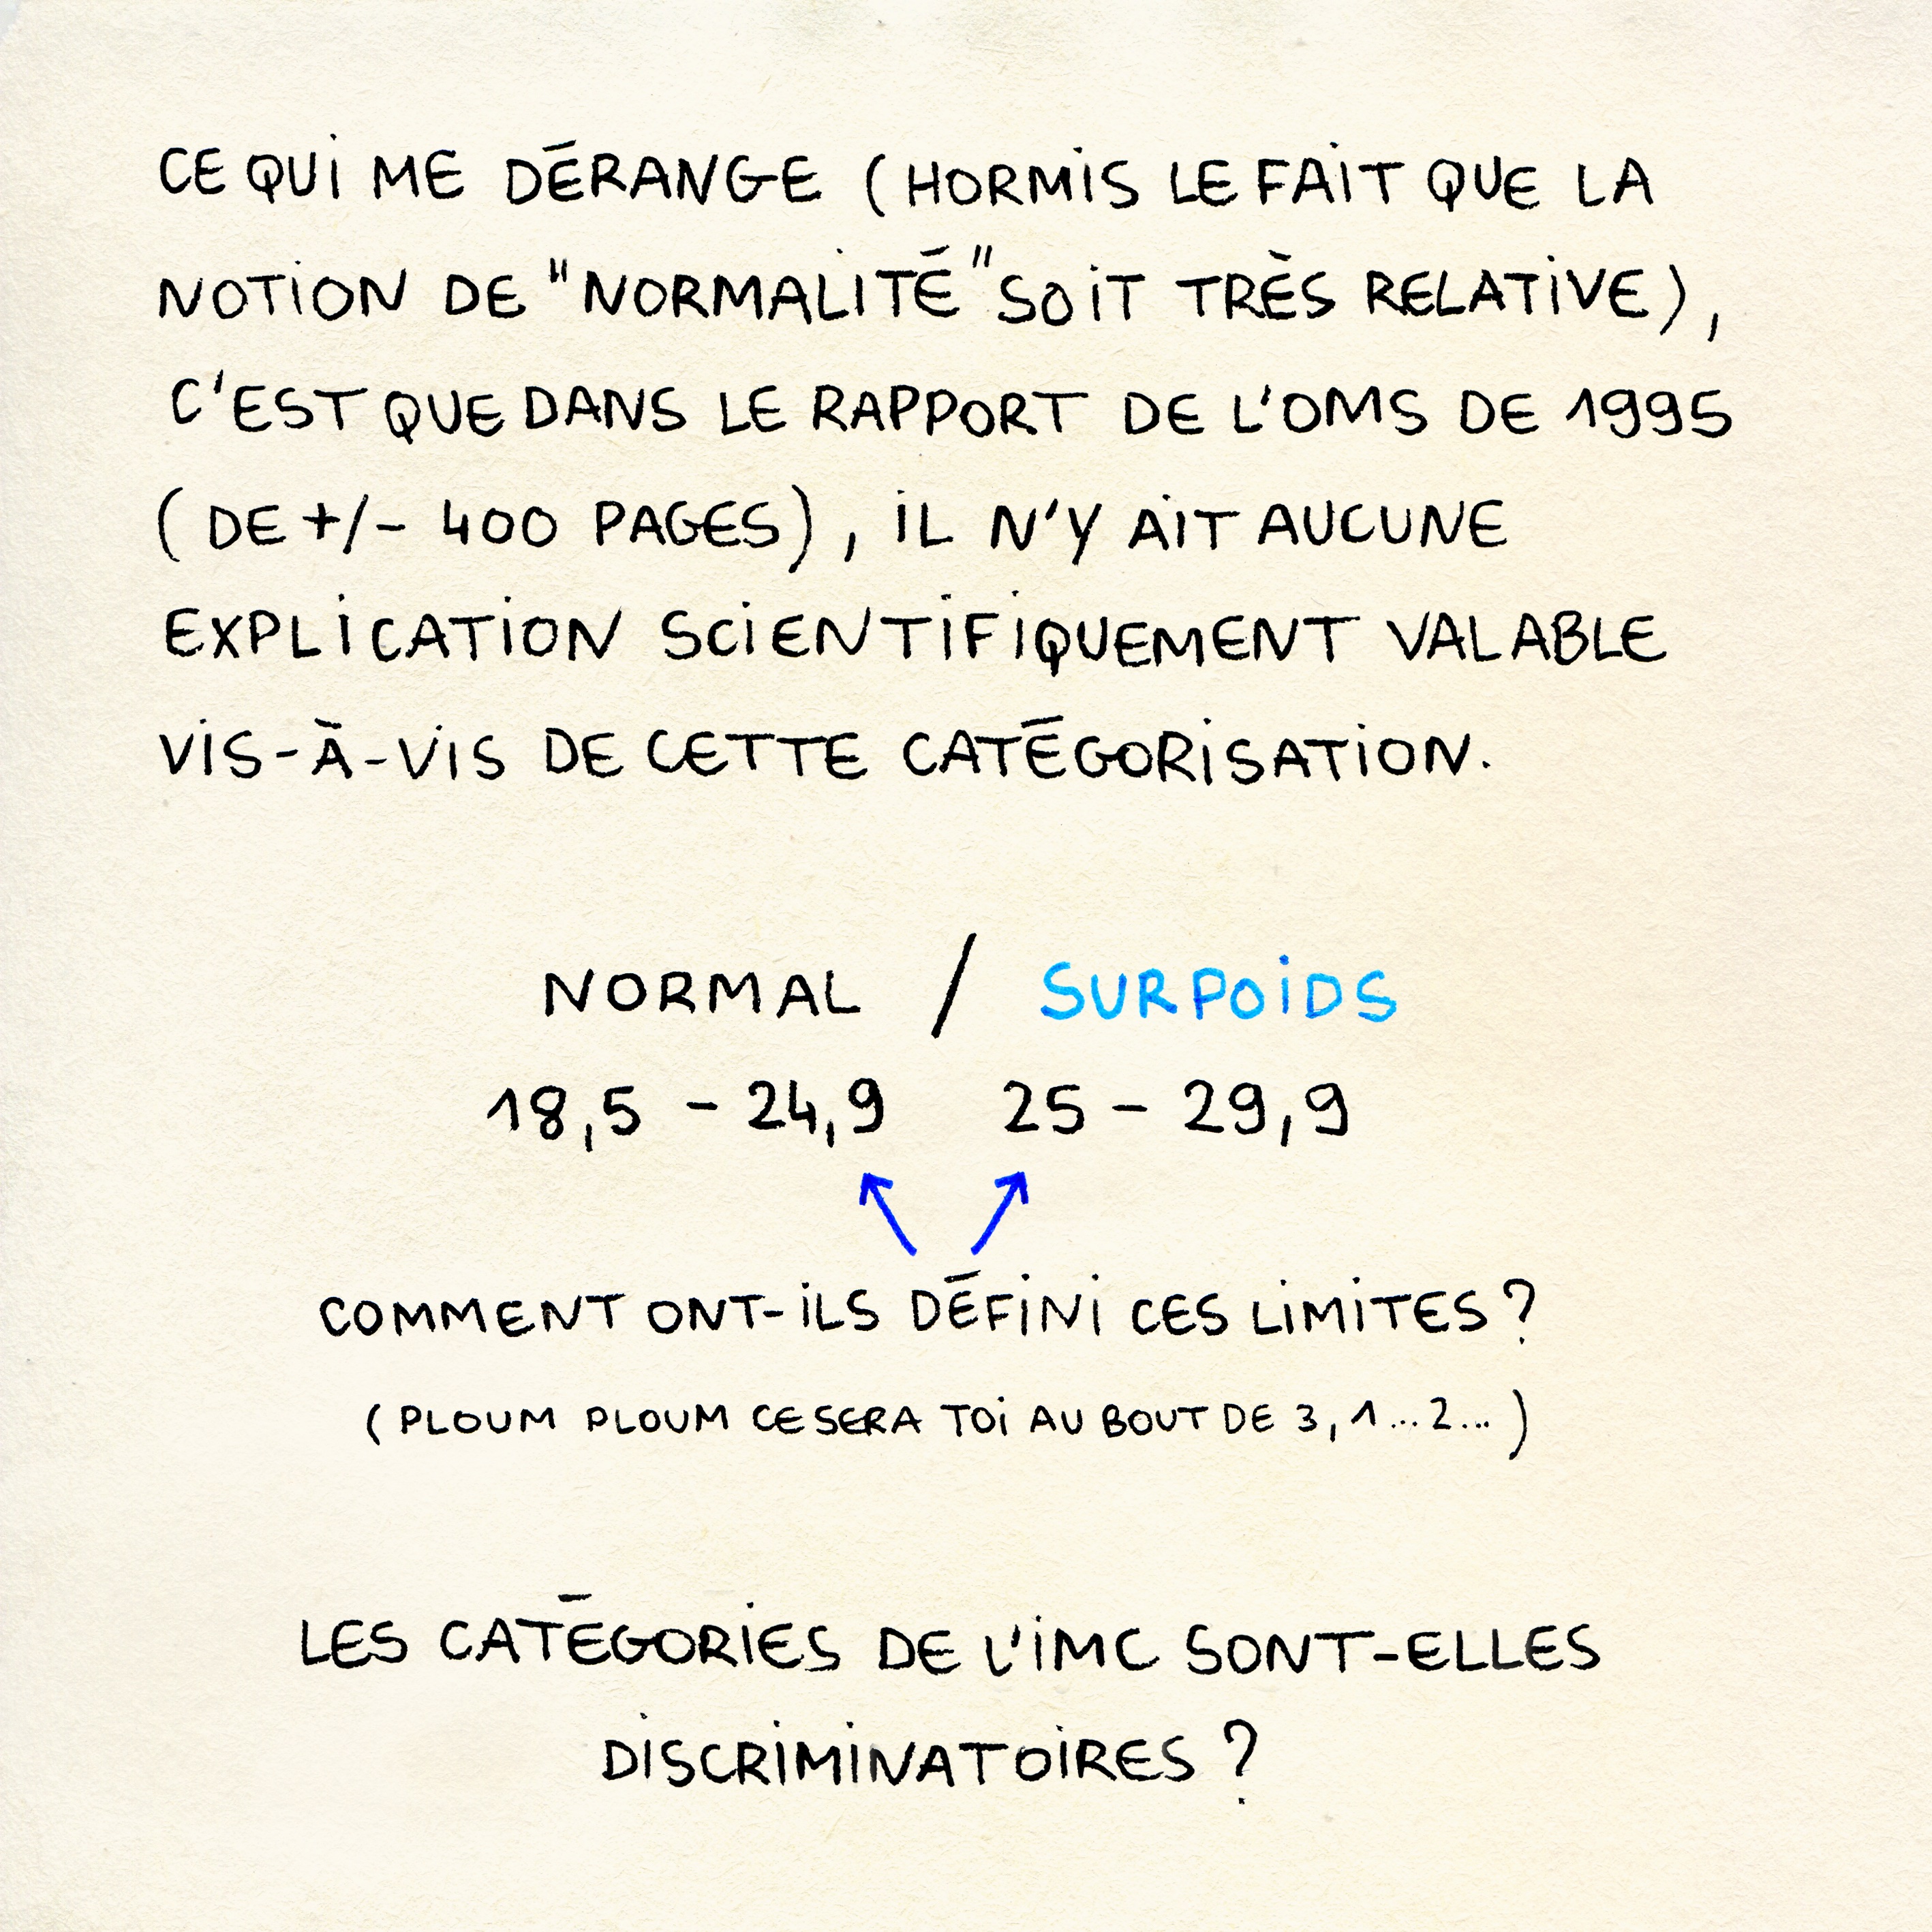 CE QUI ME DÉRANGE (HORMIS LE FAIT QUE LA
NOTION DE "NORMALITÉ" SOIT TRÈS RELATIVE),
C'EST QUE DANS LE RAPPORT DE L'OMS DE 1995
(DE +/- 400 PAGES), IL N'Y AIT AUCUNE
EXPLICATION SCIENTIFIQUEMENT VALABLE
VIS-À-VIS DE CETTE CATÉGORISATION.
NORMAL / SURPOIDS
18,5 - 24,9 25 - 29,9
COMMENT ONT-ILS DÉFINI CES LIMITES ?
(PLOUM PLOUM CE SERA TOI AU BOUT DE 3, 1... 2...)
LES CATÉGORIES DE L'IMC SONT-ELLES
DISCRIMINATOIRES ?